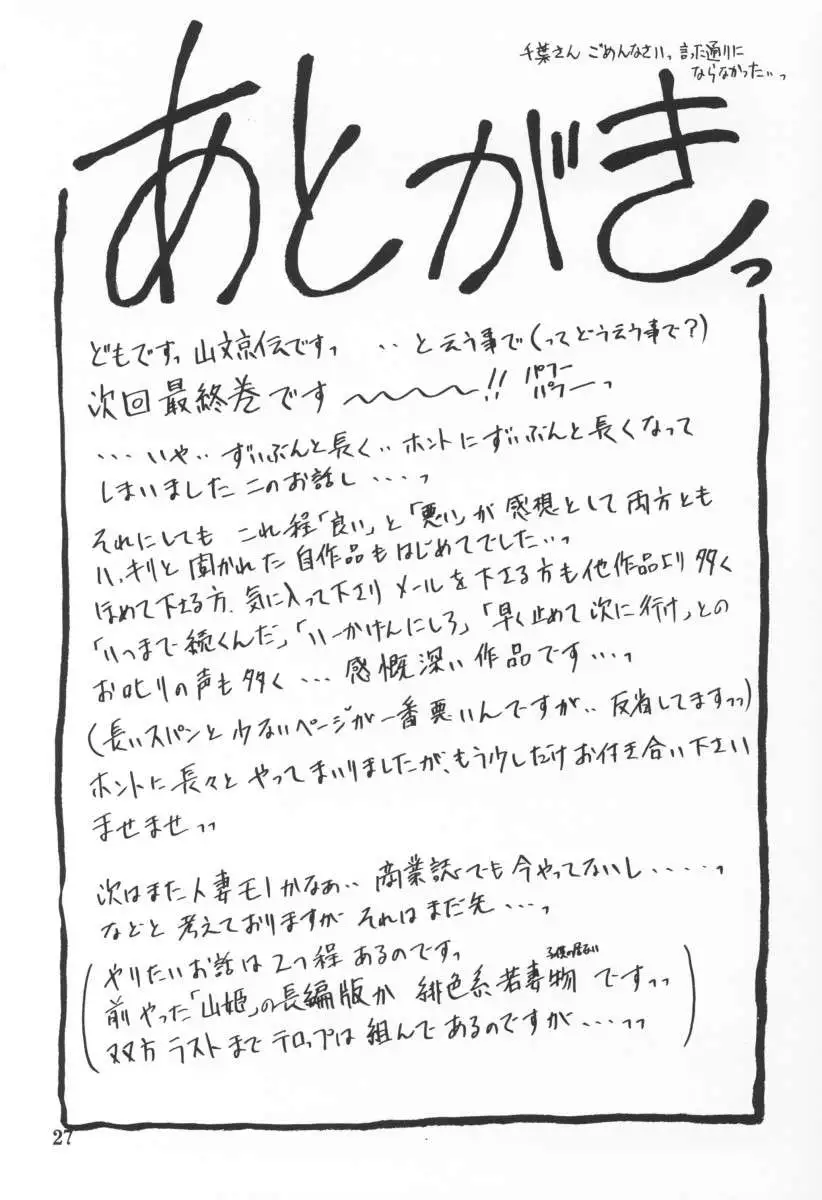 千葉さん ごめんなさいっ 言った通りに
ならなかった‥っ
あとがきっ
どもですっ 山文京伝ですっ ‥と云う事で(ってどう云う事で?)
次回最終巻です〜〜〜〜!! パフー
パフーっ
‥‥いや‥ずいぶんと長く‥ホントにずいぶんと長くなって
しまいましたこのお話し‥‥っ
それにしても これ程「良い」と「悪い」が感想として両方とも
ハッキリと聞かれた自作品もはじめてでした‥っ
ほめて下さる方、気に入って下さり メールを下さる方も他作品より多く
「いつまで続くんだ」「いーかげんにしろ」「早く止めて次に行け」との
お叱りの声も多く‥‥感慨深い作品です‥‥っ
(長いスパンと少ないページが一番悪いんですが‥反省してますっっ)
ホントに長々とやってまいりましたが、もう少しだけお付き合い下さい
ませませっっ
次はまた人妻モノかなぁ‥商業誌でも今やってないし‥‥‥っ
などと考えておりますが それはまだ先‥‥っ
(やりたいお話は2つ程あるのですっ
前やった「山姫」の長編版か 緋色系若妻物ですっっ
子供の居ない
双方ラストまでテロップは組んであるのですが‥‥っっ)
27